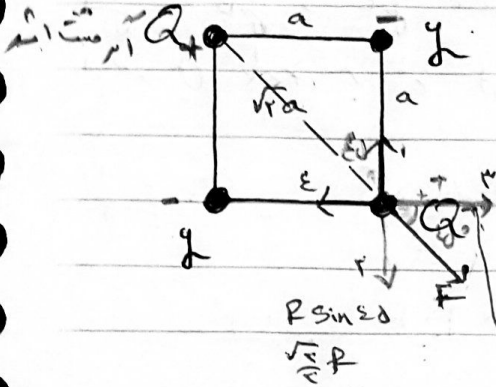 اگر مثبت باشد Q + a - q
√۲ a a
۴۵ ۱
- ۴ + Q ۳
q ۴۵
۲ F
F sin ۴۵
√۲/۲ F